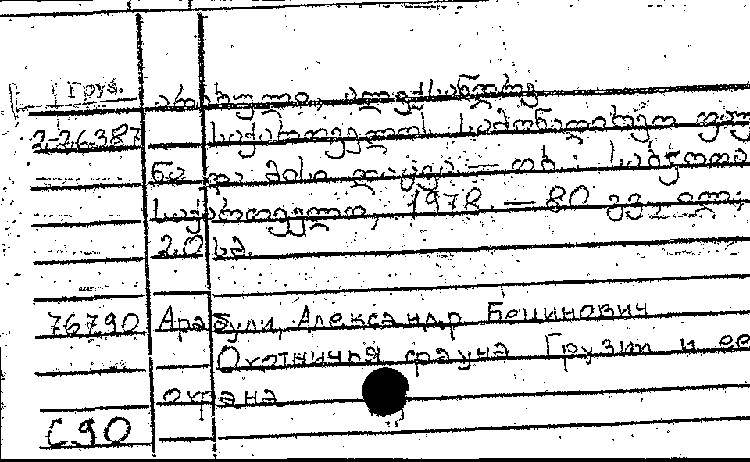 Груз.
არაბული, ალექსანდრე
2-26.387 საქართველოს სამონადირეო ფაუ
ნა და მისი დაცვა — თბ.: საბჭოთა
საქართველო, 1978. — 80 გვ., ილ.;
20 სმ.
76790 Арабули, Александр Бечинович
Охотничья фауна Грузии и ее
охрана
С90